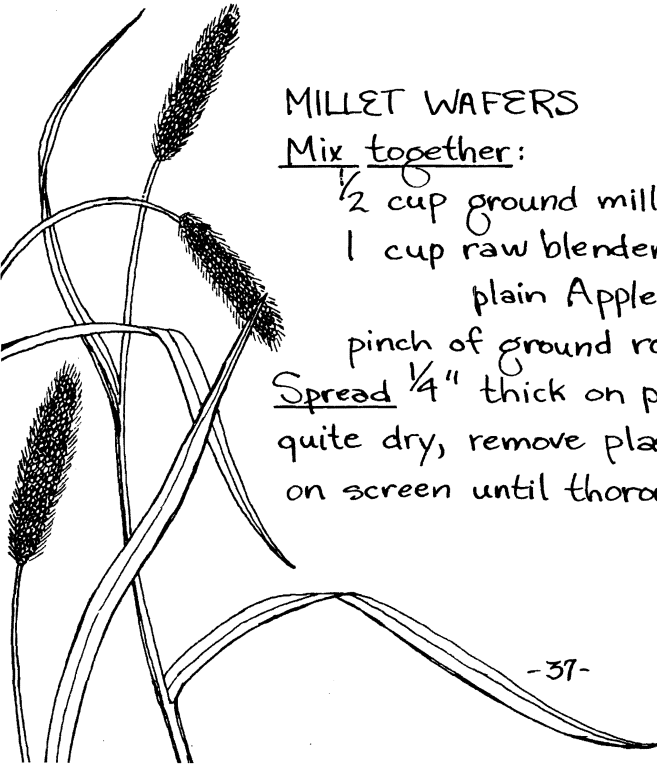 MILLET WAFERS
Mix together:
1/2 cup ground mill
1 cup raw blender
plain Apple
pinch of ground ro
Spread 1/4" thick on p
quite dry, remove pla
on screen until thoro
-37-